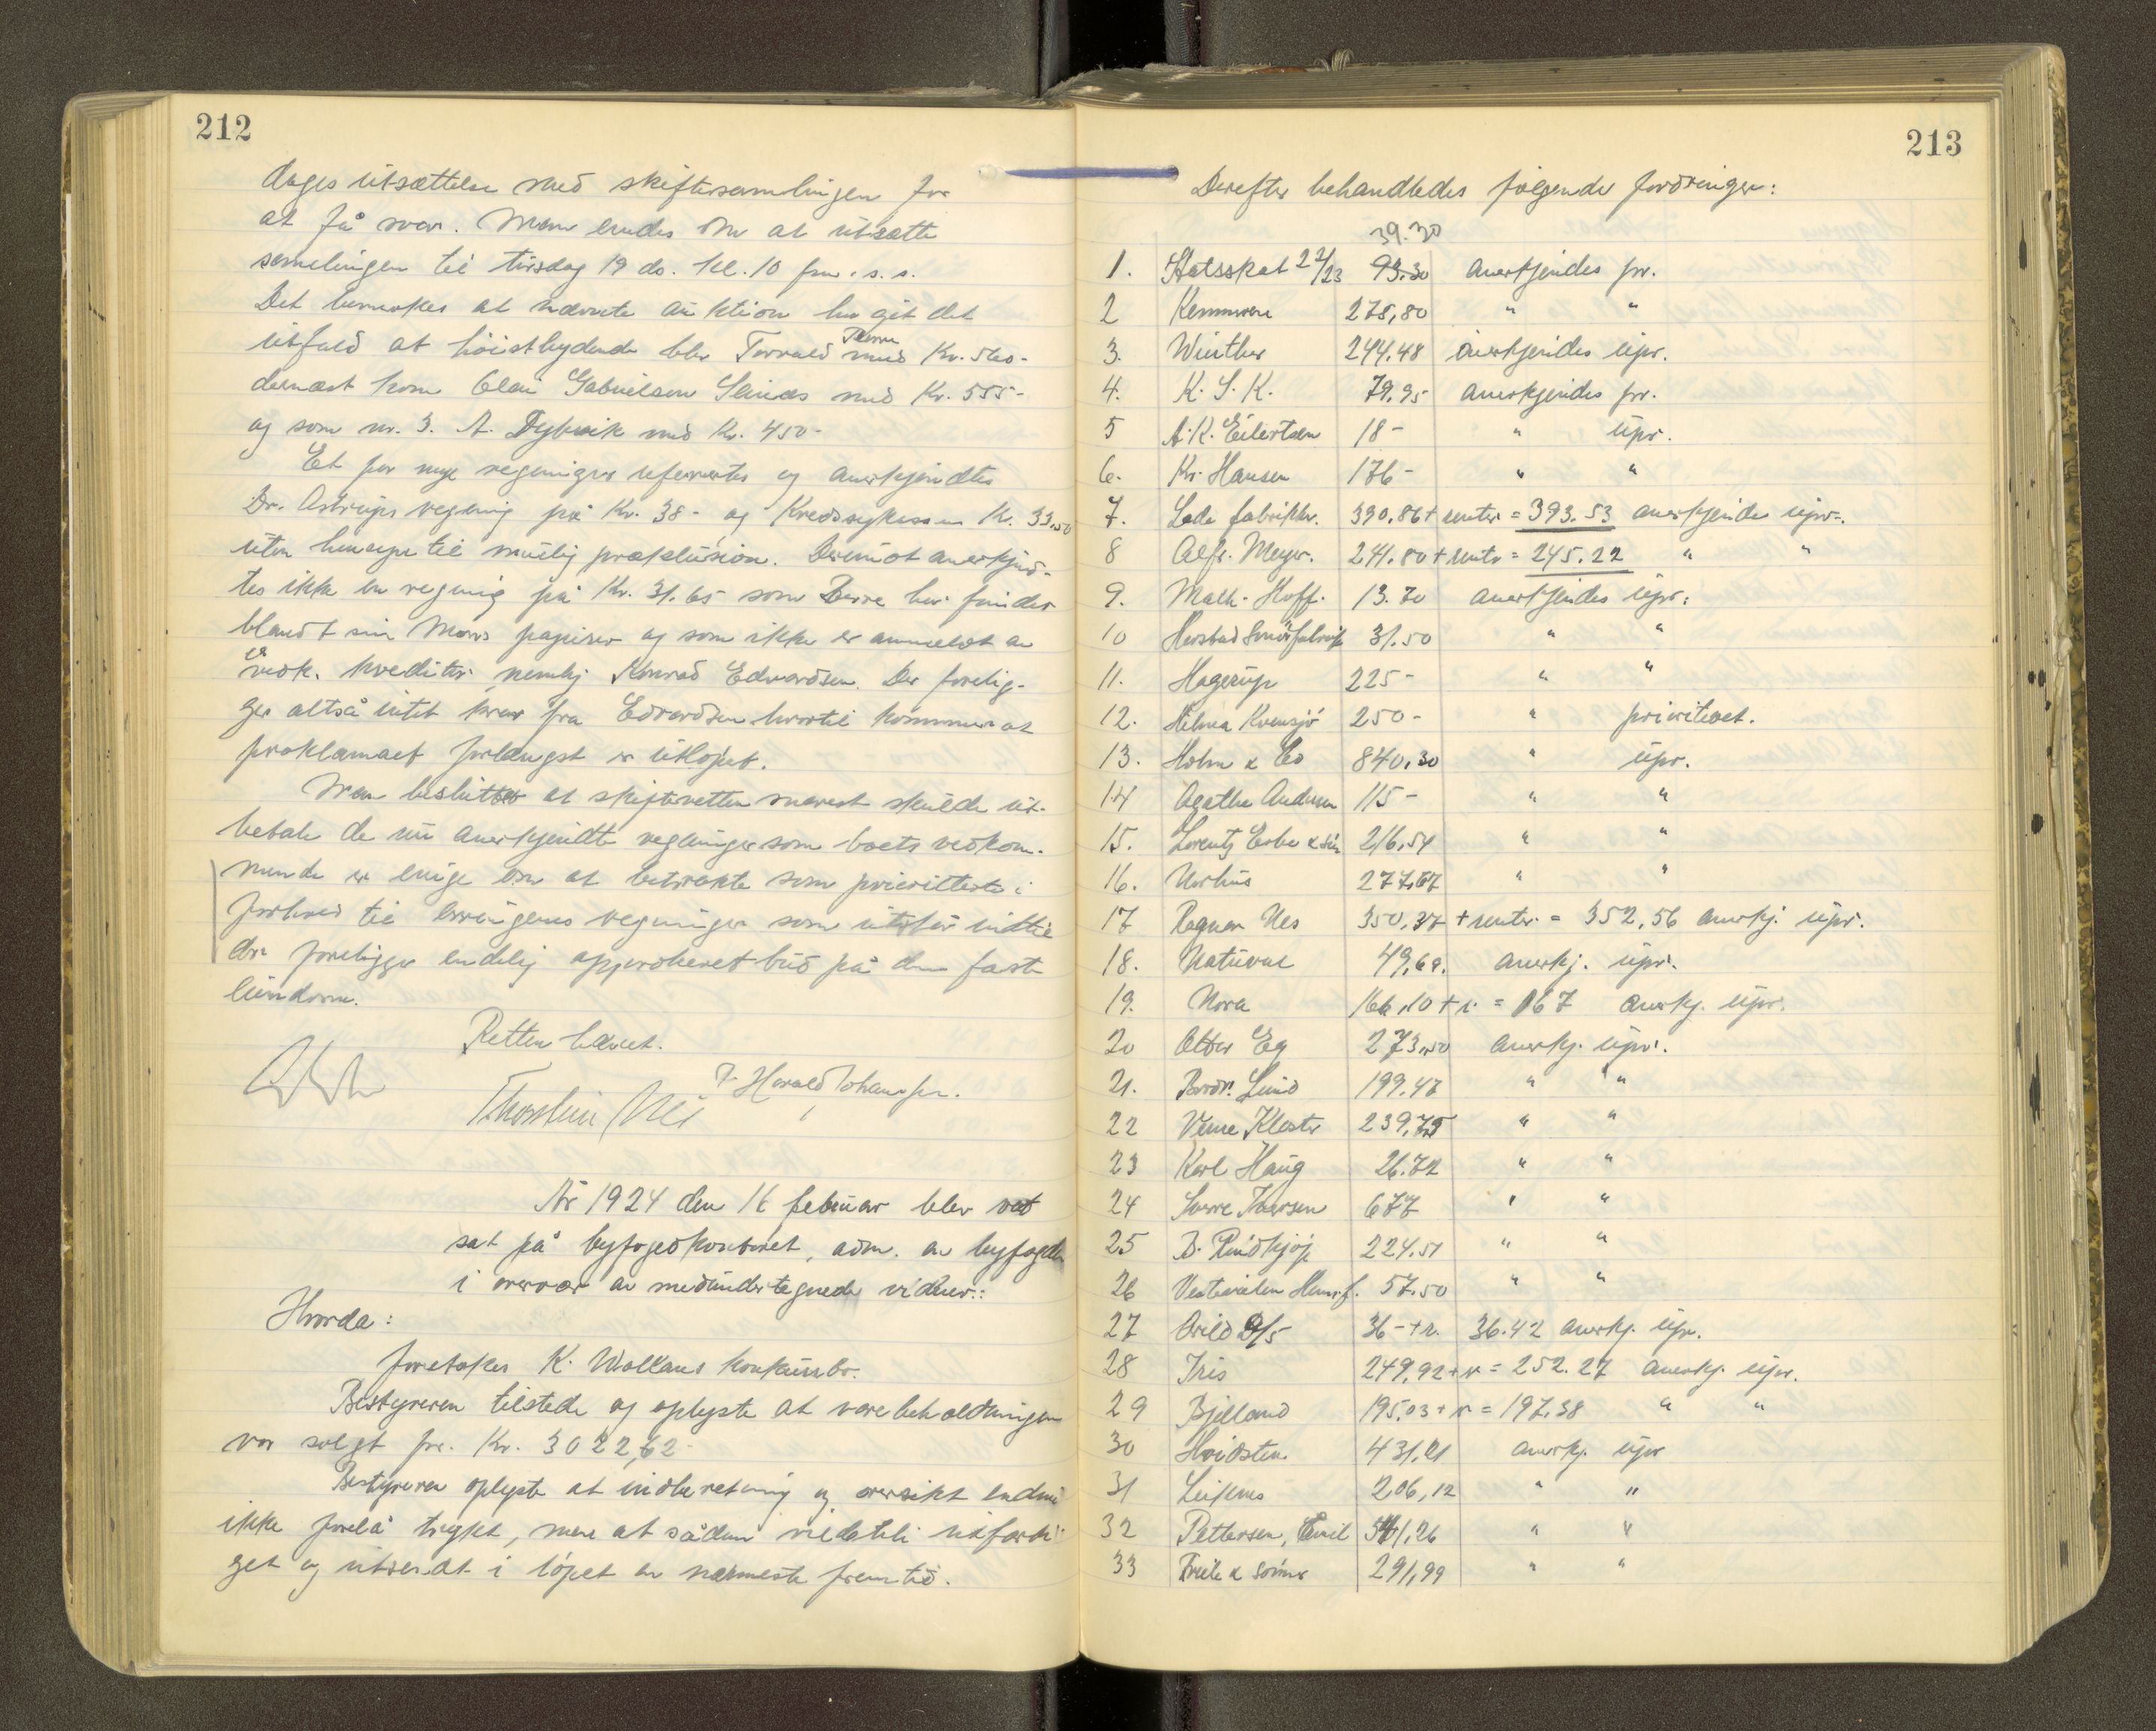 212
dages utsættelse med skiftesamlingen for
at få svar. Man enedes om at utsætte
samlingen til tirsdag 19 ds. kl. 10 fm. s. s.
Det bemerkes at nævnte auktion har git det
utfald at höistbydende blev Torvald Berre med Kr. 560-
dernæst kom Olai Gabrielsen med Kr. 555-
og som nr. 3. A. Dybwik med Kr. 450-
Et par nye regninger refereertes og anerkjendtes
Dr. Astrups regning på Kr. 38- og Kredssykekassen Kr. 33,50
uten hensyn til mulig præklusion. Derimot anerkjend-
tes ikke en regning på Kr. 31.65 som Berre har fundet
blandt sin Mors papirer og som ikke er anmeldt av
vedk. kreditor nemlig Konrad Edvardsen. Der forelig-
ger altså intet krav fra Edvardsen hvortil kommer at
proklamaet forlængst er utlöpet.
Man besluttet at skifteretten snarest skulde ut-
betale de nu anerkjendte regninger som boets vedkom-
mende er enige om at betrakte som prioriterte i
forhold til arvingenes regninger som utstår indtil
der foreligger endelig approberet bud på den faste
eiendom.
Retten hævet.
Harald Johansen.
Thorstein
År 1924 den 16 februar blev ret
sat på byfogedkontoret, adm. av byfogden
i overvær av medundertegnede vidner:
Hvorda:
foretokes K. Wollans konkursbo.
Bestyreren tilstede og oplyste at varebeholdningen
var solgt for Kr. 3022,62-
Bestyreren oplyste at indberetning og oversikt endnu
ikke forelå trykt, men at sådan vilde bli utfærdi-
get og utsendt i löpet av nærmeste fremtid.
213
Derefter behandledes følgende fordringer:
39.30
1. Statsskat 22/23 93.30 anerkjendes pr.
2 Kemneren 278,80 " "
3. Winther 244.48 anerkjendes upr.
4. K. S. K. 79.95 anerkjendes pr.
5 A. K. Eilertsen 18- " upr.
6. Kr. Hansen 176- " "
7. Lade fabrikker. 390.86 + renter = 393.53 anerkjendes upr.
8 Alfr. Meyer. 241.80 + renter = 245.22 " "
9. Math. Hoff. 13.70 anerkjendes upr.
10 31.50 " "
11. Hagerup 225- " "
12. Helma 250- " prioritert.
13. Holm & Co 840.30 " upr.
14 Agathe Andersen 115- " "
15. Lorentz Erbe & sön 216,54 " "
16. 277,67 " "
17 Ragnar Nes 350,37 + renter = 352,56 anerkj. upr.
18. 49,69. anerkj. upr.
19. Nora 166,10 + r. = 167 anerkj. upr.
20 Otter Eg 273,50 anerkj. upr.
21. Brdr. Lund 199.47 " "
22 Kloster 239,75 " "
23 Karl Haug 26.72 " "
24 Sverre Iversen 677 " "
25 B. Rødkjøp 224.51 " "
26 57.50 " "
27 Arild 36- + r. 36.42 anerkj. upr.
28 Iris 249,92 + r = 252.27 anerkj. upr.
29 Bjelland 195,03 + r = 197.38 " "
30 Hvidsten 431,21 anerkj. upr
31 206,12 " "
32 Pettersen, Emil 341,26 " "
33 Friele & sönner 291,99 " "